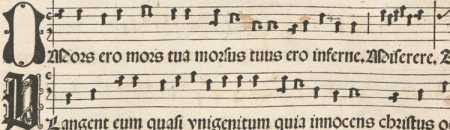 O Mors ero mors tua morsus tuus ero inferne. Miserere,
Plangent eum quasi vnigenitum quia innocens christus